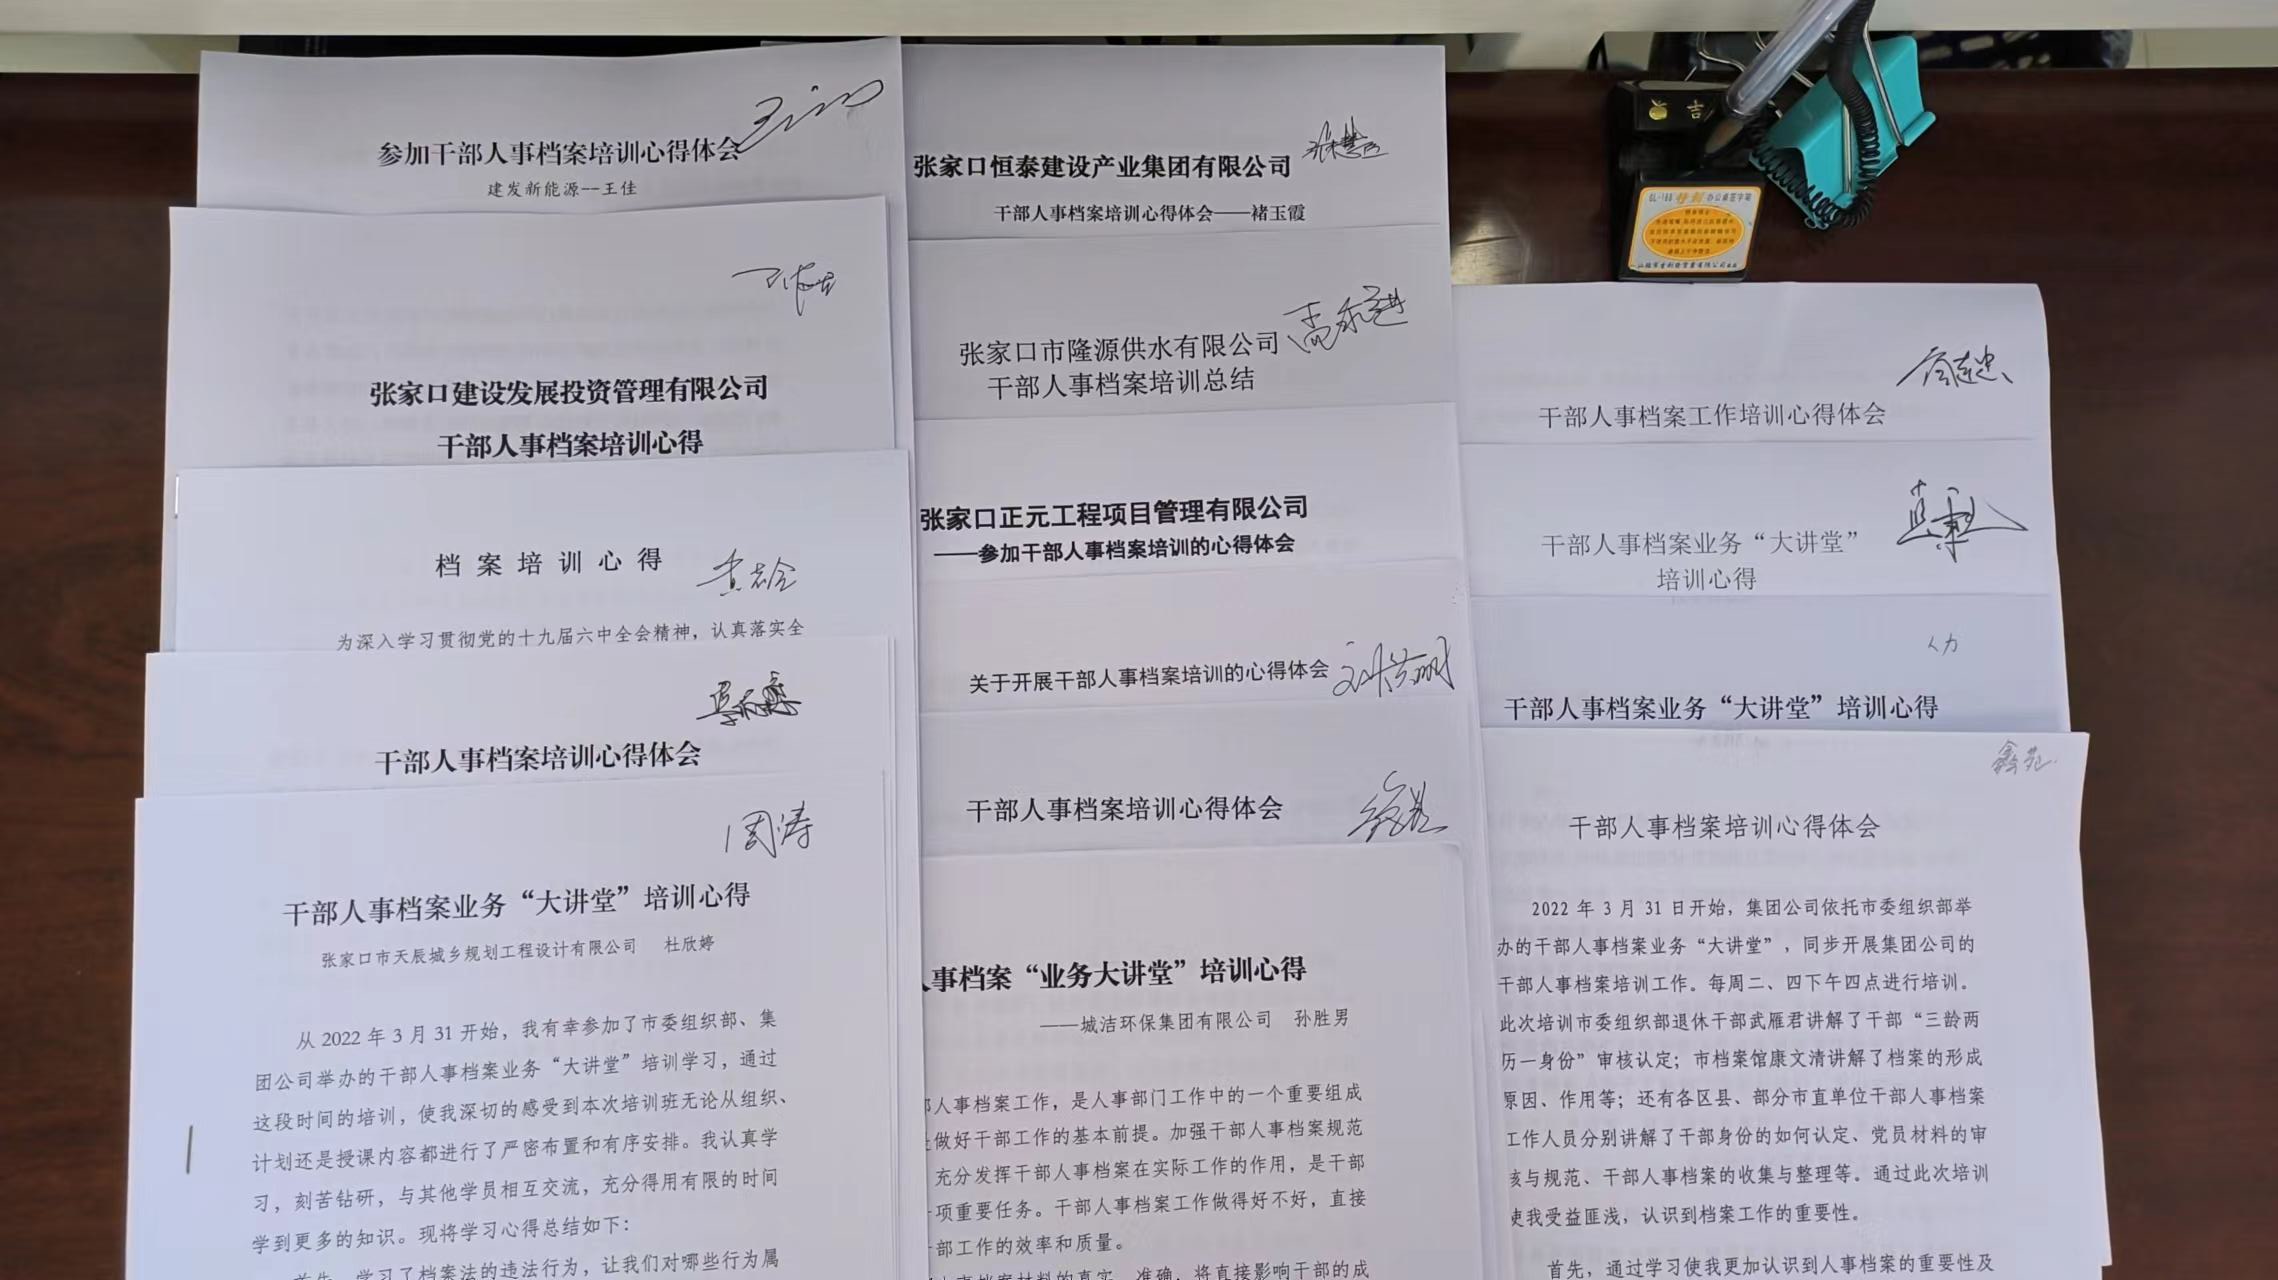 参加干部人事档案培训心得体会
建发新能源--王佳
张家口建设发展投资管理有限公司
干部人事档案培训心得
档案培训心得
为深入学习贯彻党的十九届六中全会精神，认真落实全
干部人事档案培训心得体会
周涛
干部人事档案业务“大讲堂”培训心得
张家口市天辰城乡规划工程设计有限公司 杜欣婷
从 2022 年 3 月 31 开始，我有幸参加了市委组织部、集
团公司举办的干部人事档案业务“大讲堂”培训学习，通过
这段时间的培训，使我深切的感受到本次培训班无论从组织、
计划还是授课内容都进行了严密布置和有序安排。我认真学
习，刻苦钻研，与其他学员相互交流，充分得用有限的时间
学到更多的知识。现将学习心得总结如下：
首先，学习了档案法的违法行为，让我们对哪些行为属
张家口恒泰建设产业集团有限公司
干部人事档案培训心得体会——褚玉霞
张家口市隆源供水有限公司
干部人事档案培训总结
张家口正元工程项目管理有限公司
——参加干部人事档案培训的心得体会
关于开展干部人事档案培训的心得体会
干部人事档案培训心得体会
人事档案“业务大讲堂”培训心得
——城洁环保集团有限公司 孙胜男
部人事档案工作，是人事部门工作中的一个重要组成
是做好干部工作的基本前提。加强干部人事档案规范
充分发挥干部人事档案在实际工作的作用，是干部
一项重要任务。干部人事档案工作做得好不好，直接
干部工作的效率和质量。
人事档案材料的真实、准确，将直接影响干部的成
吉
GL-188 特制 办公桌签字笔
干部人事档案工作培训心得体会
干部人事档案业务“大讲堂”
培训心得
人力
干部人事档案业务“大讲堂”培训心得
鑫苑
干部人事档案培训心得体会
2022 年 3 月 31 日开始，集团公司依托市委组织部举
办的干部人事档案业务“大讲堂”，同步开展集团公司的
干部人事档案培训工作。每周二、四下午四点进行培训。
此次培训市委组织部退休干部武雁君讲解了干部“三龄两
历一身份”审核认定；市档案馆康文清讲解了档案的形成
原因、作用等；还有各区县、部分市直单位干部人事档案
工作人员分别讲解了干部身份的如何认定、党员材料的审
核与规范、干部人事档案的收集与整理等。通过此次培训
使我受益匪浅，认识到档案工作的重要性。
首先，通过学习使我更加认识到人事档案的重要性及